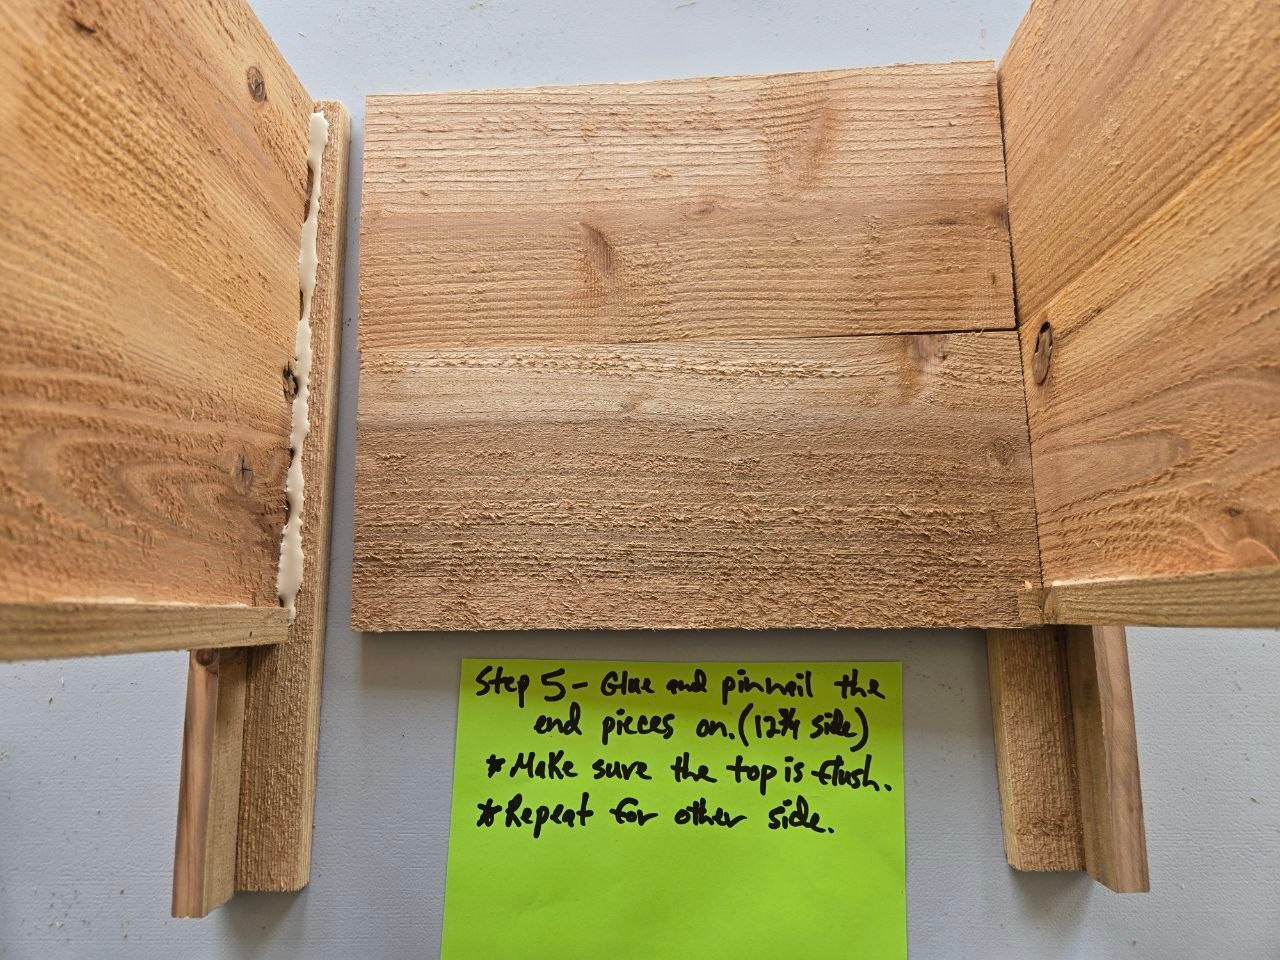 Step 5 - Glue and pinnail the
end pieces on. (12 3/4 side)
* Make sure the top is flush.
* Repeat for other side.